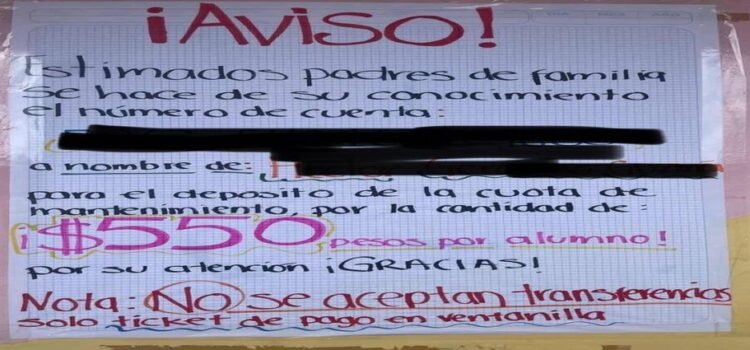 ¡AVISO!
Estimados padres de familia
se hace de su conocimiento
el número de cuenta:
a nombre de:
para el deposito de la cuota de
mantenimiento, por la cantidad de:
¡$550 pesos por alumno!
por su atención ¡GRACIAS!
Nota: NO se aceptan transferencias
solo ticket de pago en ventanilla